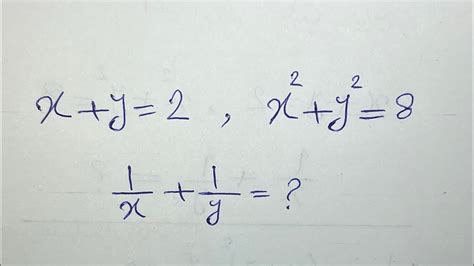 x+y=2 , x²+y²=8
1/x + 1/y = ?